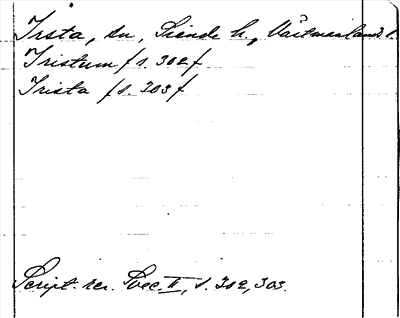 Irsta, sn, Siende h., Västmanland l.
Tristum (s. 302)
Trista (s. 303)
Script. rer. Svec. II, s. 302, 303.